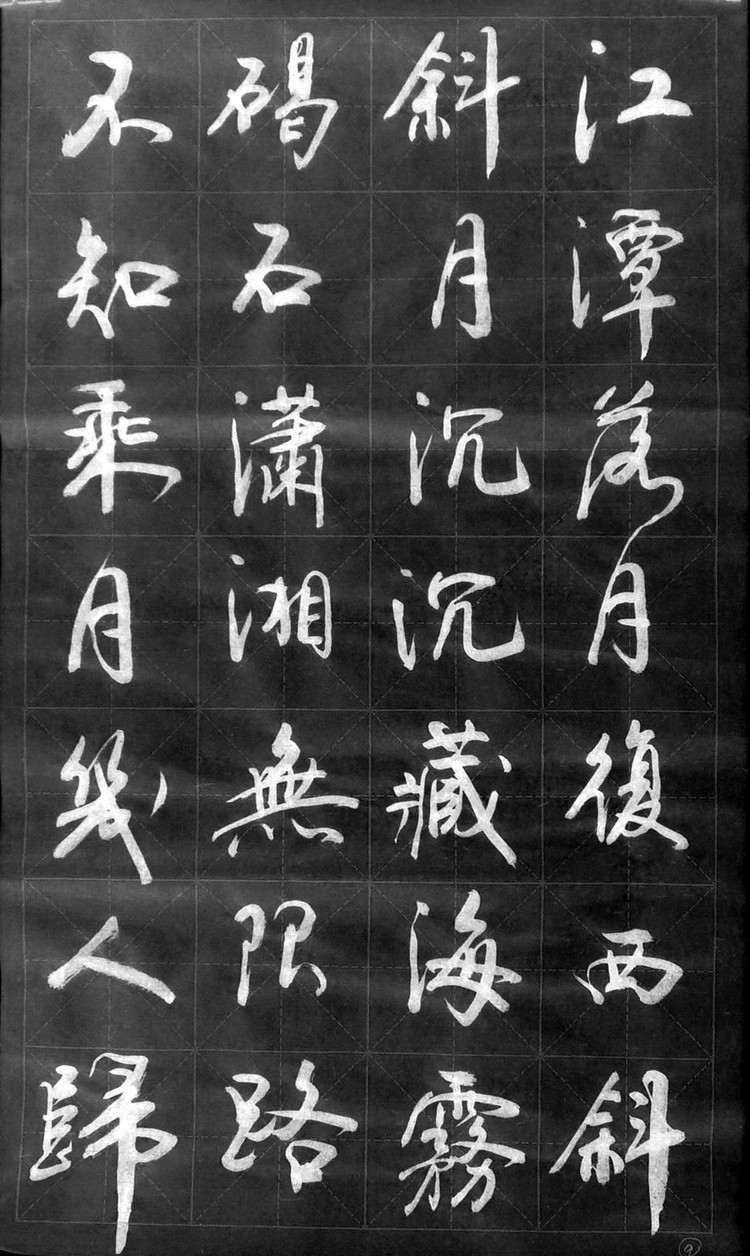 江潭落月復西斜
斜月沉沉藏海霧
碣石瀟湘無限路
不知乘月幾人歸
9